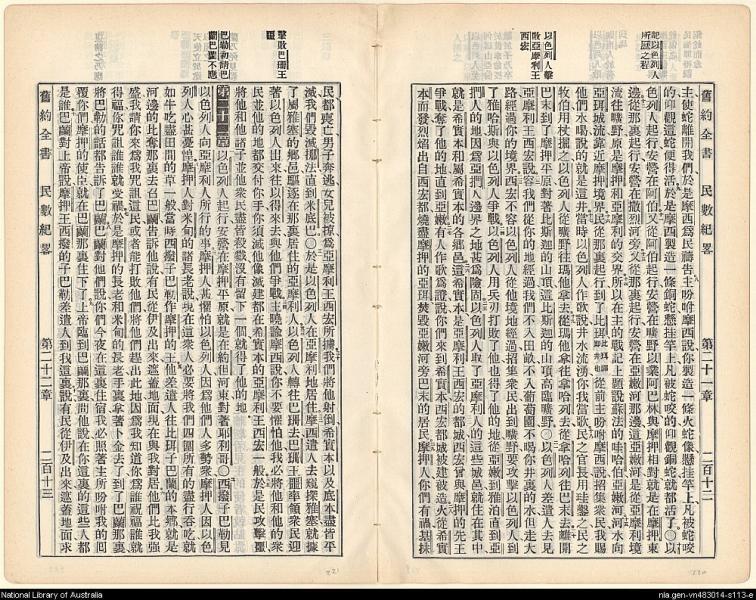 舊約全書 民數紀畧 第二十一章 二百十二
記以色列人所歷之程
以色列人擊敗亞摩利王西宏
主使蛇離開我們於是摩西爲民禱告主吩咐摩西說你製造一條火蛇像懸挂竿上凡被蛇咬
的仰觀這蛇便得活於是摩西製造一條銅蛇懸挂竿上凡被蛇咬的仰觀銅蛇就都活了〇以
色列人起行安營在阿伯又從阿伯起行安營在曠野以耶阿巴林與摩押相對就是在摩押東
邊從那裏起行安營在撒烈河旁又從那裏起行安營在亞嫩河那邊這亞嫩河是從亞摩利境
流往曠野原是摩押和亞摩利的交界所以在主的戰記上題說蘇法的哇哈伯亞嫩河河水向
亞珥城流靠近摩押境界民從那裏起行到了比珥從前主吩咐摩西說招集衆民我賜
他們水喝說的就是這井當時以色列人作歌說井水流湧你我當歌民之官長用珪鑿之民之
牧伯用杖掘之以色列人從曠野往瑪他拿去從瑪他拿往拿哈列去從拿哈列往巴末去離開
巴末到了摩押平原對著比斯迦的山頂這比斯迦的山頂高臨曠野〇以色列人差遣人去見
亞摩利王西宏說容我們從你的地經過我們不入田畝不入葡萄園不喝你井裏的水但走大
路經過你的境界西宏不容以色列人從他境地經過招集衆民出到曠野要攻擊以色列人到
了雅哈斯與以色列人爭戰以色列人用兵刃打敗了他也得了他的地從亞嫩到雅泊直到亞
押的地因爲亞捫人邊界之地甚爲險固以色列人取了亞摩利人的這些城邑就住在其中
就是希實本和屬希實本的各鄉邑這希實本是亞摩利王西宏的都城西宏曾與摩押的先王
爭戰奪了他的地直到亞嫩有人作歌爲證說你們來到希實本西宏都城被建被造火從希實
本而發烈焰出自西宏都燒盡摩押的亞珥焚毀亞嫩河旁巴末的居民摩押人你們有禍基抹
舊約全書 民數紀畧 第二十二章 二百十三
擊敗巴珊王噩
巴勒初請巴蘭巴蘭不應
民都喪亡男子奔逃女兒被擄爲亞摩利王西宏所擄我們將他射倒希實本以及底本盡皆平
滅我們毀滅擲法直到米底巴〇於是以色列人在亞摩利地居住摩西遣人去窺探雅塞就據
了屬雅塞的鄉邑驅逐在那裏居住的亞摩利人以色列人轉往巴珊去巴珊王噩率領衆民迎
著以色列人出來往以得來去與他們爭戰主曉諭摩西說你不要懼怕他我必將他和他的衆
民並他的地都交付你手你須滅他像滅建都在希實本的亞摩利王西宏一般於是民攻擊噩
將他和他諸子並他衆民盡皆殺戮沒有留下一個就得了他的地
第二十二章以色列人起行安營在摩押平原就是在約但河東對著耶利哥〇西撥子巴勒見
以色列人向亞摩利人所行的事摩押人甚懼怕以色列人因爲他們人多勢衆摩押人因以色
列人心甚憂惶摩押人對米甸的諸長老說現在這衆人必要將我們四圍所有的盡行吞吃就
如牛吃盡田間的草一般當時西撥子巴勒作摩押的王他差遣人往比珥子巴蘭的本鄉就是
河邊的比奪那裏去召巴蘭告訴他說有民從伊及出來遮蓋地面現在與我對居他們比我強
盛我請你來爲我咒詛這民或者能打敗他們將他們趕出此地因爲我知道你爲誰祝福誰就
得福你咒詛誰誰就受禍於是摩押的長老和米甸的長老手裏拿著卜金去了到了巴蘭那裏
將巴勒的話都告訴了巴蘭巴蘭對他們說你們今夜在這裏住宿我必照著主所吩咐我的回
覆你們摩押的使臣就在巴蘭那裏住下了上帝臨到巴蘭那裏問他說在你這裏的這些人都
是誰巴蘭對上帝說摩押王西撥的子巴勒差遣人到我這裏說有民從伊及出來遮蓋地面求
National Library of Australia
nla.gen-vn483014-s113-e